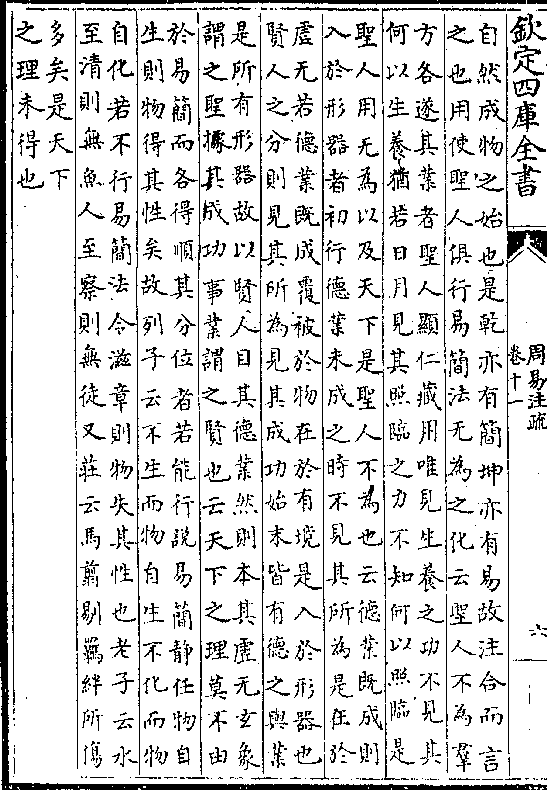 欽定四庫全書
周易注疏
卷十一
六
自然成物之始也是乾亦有簡坤亦有易故注合而言
之也用使聖人俱行易簡法无為之化云聖人不為羣
方各遂其業者聖人顯仁藏用唯見生養之功不見其
何以生養猶若日月見其照臨之力不知何以照臨是
聖人用无為以及天下是聖人不為也云德業既成則
入於形器者初行德業未成之時不見其所為是在於
虛无若德業既成覆被於物在於有境是入於形器也
賢人之分則見其所為見其成功始末皆有德之與業
是所有形器故以賢人目其德業然則本其虛无玄象
謂之聖據其成功事業謂之賢也云天下之理莫不由
於易簡而各得順其分位者若能行說易簡靜任物自
生則物得其性矣故列子云不生而物自生不化而物
自化若不行易簡法令滋章則物失其性也老子云水
至清則無魚人至察則無徒又莊云馬翦剔羈絆所傷
多矣是天下
之理未得也